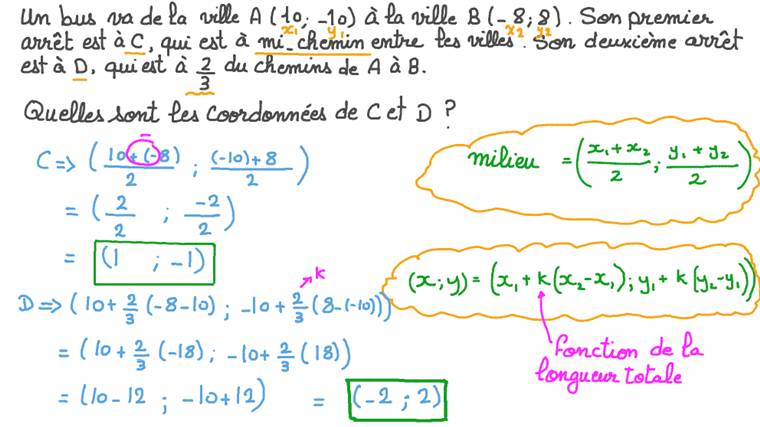 Un bus va de la ville A (10; -10) à la ville B (-8; 8). Son premier
x₁ y₁ x₂ y₂
arrêt est à C, qui est à mi-chemin entre les villes. Son deuxième arrêt
est à D, qui est à 2/3 du chemins de A à B.
Quelles sont les coordonnées de C et D ?
-
C => ( (10+(-8))/2 ; ((-10)+8)/2 )
= ( 2/2 ; -2/2 )
= (1 ; -1)
milieu = ( (x₁+x₂)/2 ; (y₁+y₂)/2 )
k
D => (10+2/3(-8-10) ; -10+2/3(8-(-10)))
= (10+2/3(-18) ; -10+2/3(18))
= (10-12 ; -10+12) = (-2 ; 2)
(x;y) = (x₁+k(x₂-x₁); y₁+k(y₂-y₁))
fonction de la
longueur totale